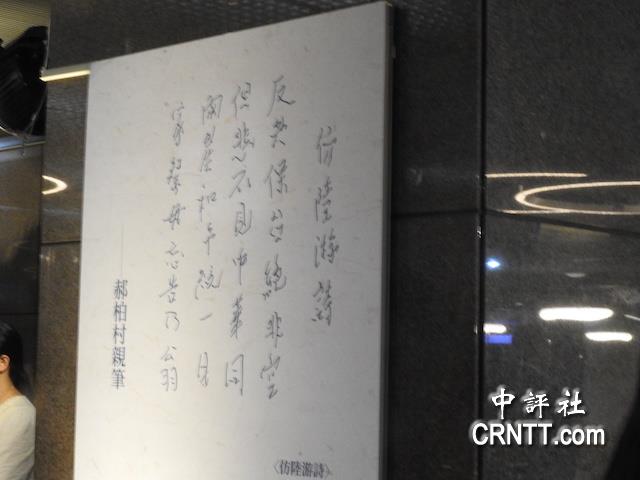 仿陸游詩
反共保台絕非空
但悲不見中華同
兩岸和平統一日
家祭毋忘告乃翁
——郝柏村親筆
〈仿陸游詩〉
中評社
CRNTT.com